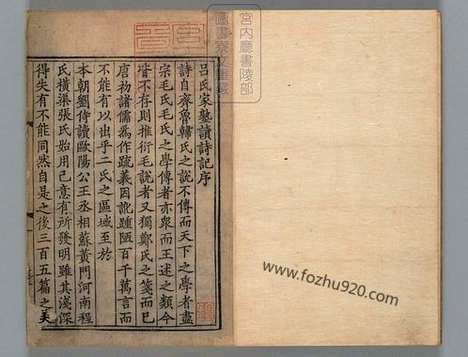 呂氏家塾讀詩記序
詩自齊魯韓氏之說不傳而天下之學者盡
宗毛氏毛氏之學傳者亦衆而王述之類今
皆不存則推衍毛說者又獨鄭氏之箋而已
唐初諸儒為作疏義因訛踵陋百千萬言而
不能有以出乎二氏之區域至於
本朝劉侍讀歐陽公王丞相蘇黃門河南程
氏橫渠張氏始用己意有所發明雖其淺深
得失有不能同然自是之後三百五篇之美
宮內廳書陵部
www.fozhu920.com